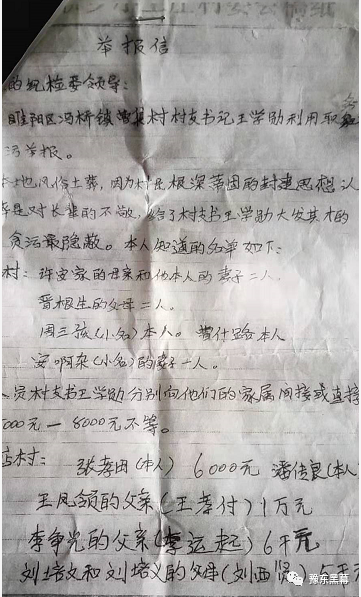 举报信
的纪检委领导：
睢阳区冯桥镇曹集村村支书记王学勋利用职
污举报。
本地风俗土葬，因为村民根深蒂固的封建思想认
葬是对长辈的不敬，给了村支书王学勋大发其才的
贪污最隐蔽。本人知道的名单如下：
村：许安家的母亲和他本人的妻子二人
曹根生的父母二人。
周三孩(小名)本人。 曹什安本人
安啊杂(小名)的妻子一人。
人员村支书王学勋分别向他们的家属间接或直接
000元一8000元不等。
村： 张孝田(本人) 6000元 潘传良(本人
王凤领的父亲(王孝付)1万元
李争光的父亲(李运起)6千元
刘培文和刘培义的父母(刘西贤)5千
豫东黑幕